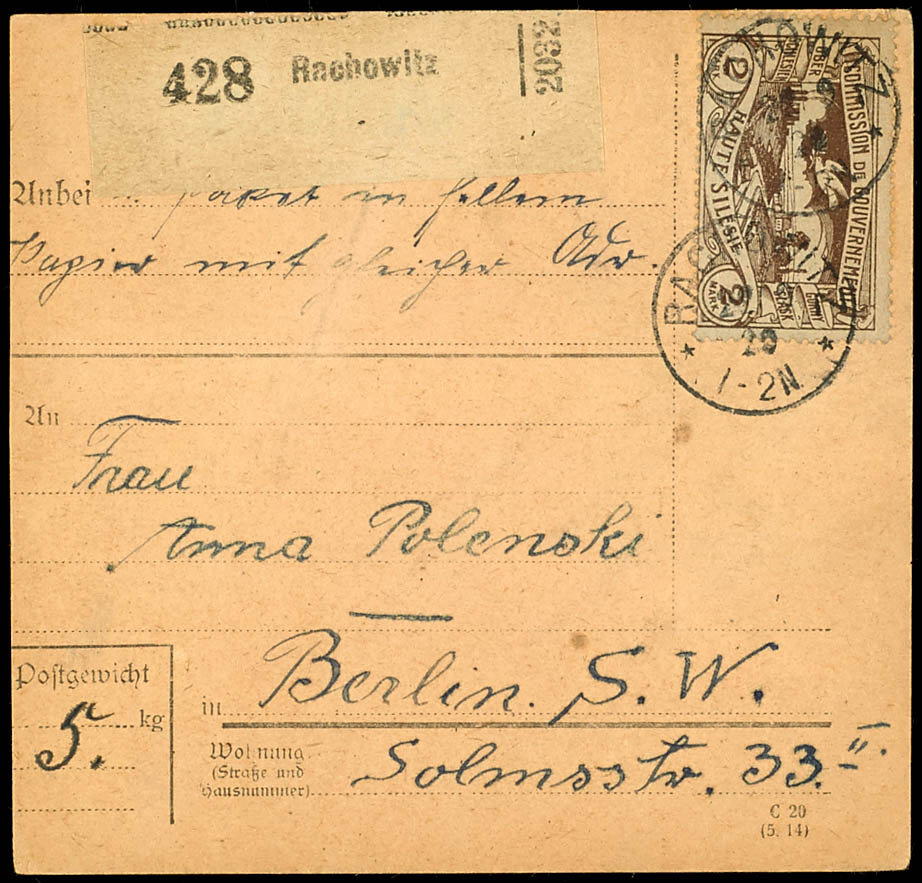 428 Rachowitz
2032
COMMISSION DE GOUVERNEMENT
HAUTE SILESIE
2 MARK
2 MARK
Anbei Paket in hellem
Papier mit gleicher Adr.
20
1-2N
An
Frau
Anna Polenski
Berlin. S. W.
Postgewicht
5. kg
in
Wohnung
(Straße und
Hausnummer)
Solmsstr. 33. II.
C 20
(5. 14)